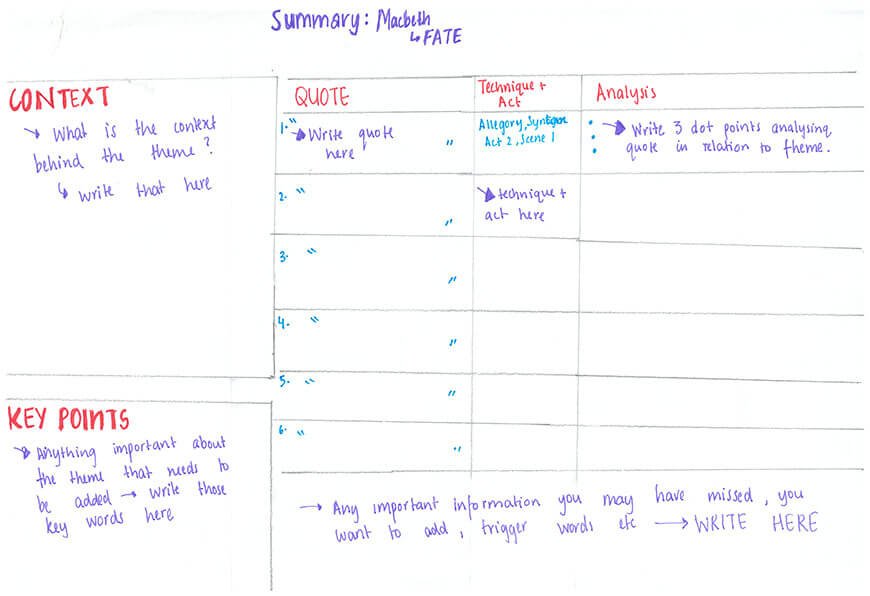 Summary: Macbeth
↳ FATE
CONTEXT
→ What is the context
behind the theme?
↳ write that here
KEY POINTS
→ Anything important about
the theme that needs to
be added → write those
key words here
QUOTE
Technique +
Act
Analysis
1. "
→ Write quote
here "
Allegory,
Act 2, Scene 1
• → Write 3 dot points analysing
• quote in relation to theme.
•
2. " "
→ technique +
act here
3. " "
4. " "
5. " "
6. " "
→ Any important information you may have missed, you
want to add, trigger words etc → WRITE HERE